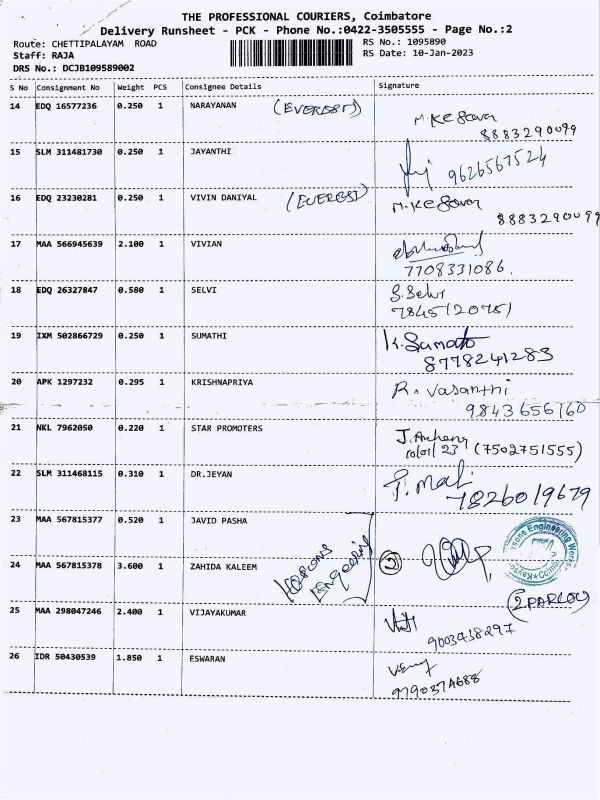 THE PROFESSIONAL COURIERS, Coimbatore
Delivery Runsheet - PCK - Phone No.:0422-3505555 - Page No.:2
Route: CHETTIPALAYAM ROAD RS No.: 1095890
Staff: RAJA RS Date: 10-Jan-2023
DRS No.: DCJB109589002
S No Consignment No Weight PCS Consignee Details Signature
14 EDQ 16577236 0.250 1 NARAYANAN (EVEREST) M. Kesavan
8883290099
15 SLM 311481730 0.250 1 JAYANTHI 9626567524
16 EDQ 23230281 0.250 1 VIVIN DANIYAL (EVEREST) M. Kesavan
8883290099
17 MAA 566945639 2.100 1 VIVIAN
7708331086.
18 EDQ 26327847 0.580 1 SELVI S. Selvi
7845120751
19 IXM 502866729 0.250 1 SUMATHI K. Sumathi
8778241283
20 APK 1297232 0.295 1 KRISHNAPRIYA R. Vasanthi
9843656160
21 NKL 7962050 0.220 1 STAR PROMOTERS J.
10/01/23 (7502751555)
22 SLM 311468115 0.310 1 DR.JEYAN
7826019679
23 MAA 567815377 0.520 1 JAVID PASHA
24 MAA 567815378 3.600 1 ZAHIDA KALEEM 2
Engineering Works
(2 PARLOU)
25 MAA 298047246 2.400 1 VIJAYAKUMAR
9003938297
26 IDR 50430539 1.850 1 ESWARAN